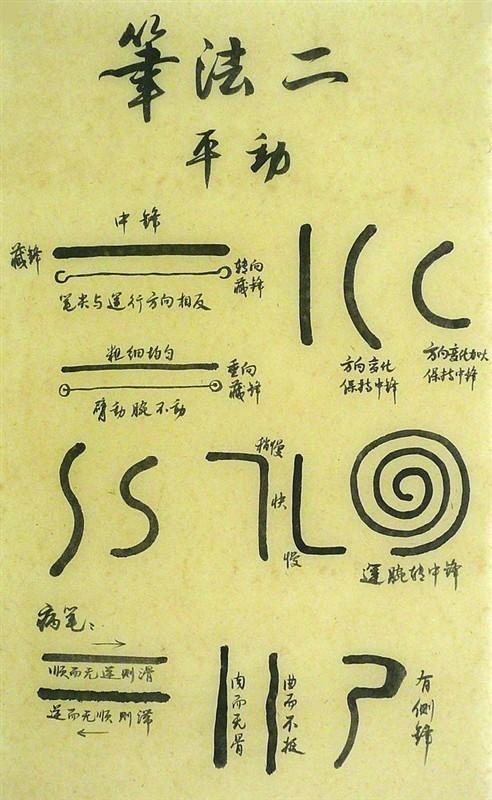 筆法二
平動
中锋
藏锋
转向
藏锋
笔尖与运行方向相反
粗细均匀
垂向
藏锋
臂动腕不动
方向变化
保持中锋
方向变化加以
保持中锋
稍慢
快
慢
运腕转中锋
病笔:
顺而无逆则滑
逆而无顺则滞
肉而无骨
曲而不挺
有侧锋